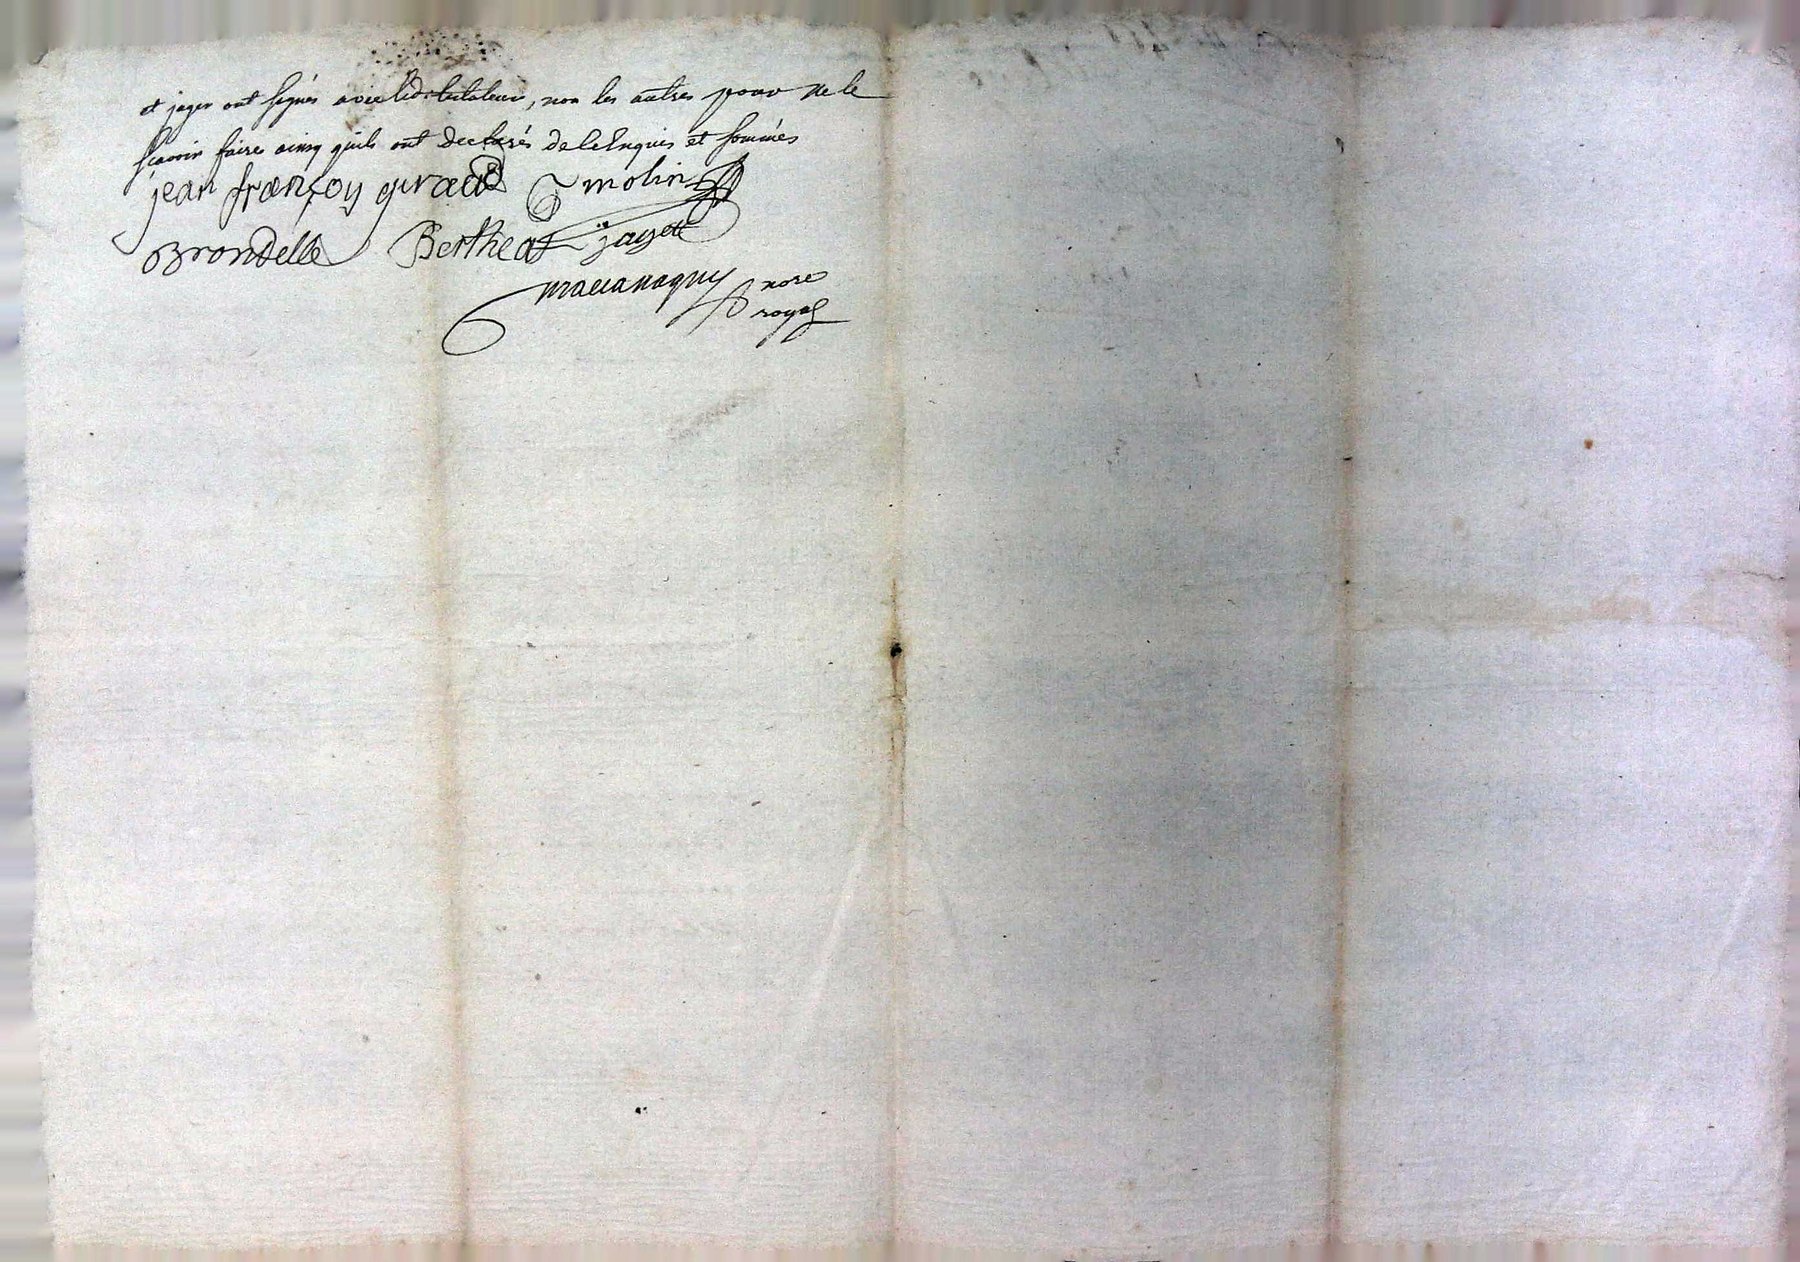 et jayet ont signés avec led. testateur, non les autres pour ne le
scavoir faire ainsy quils ont declarés de ce enquis et sommés
jean françoy giraud molin
Brondelle Bertheat jayett
nore
royal